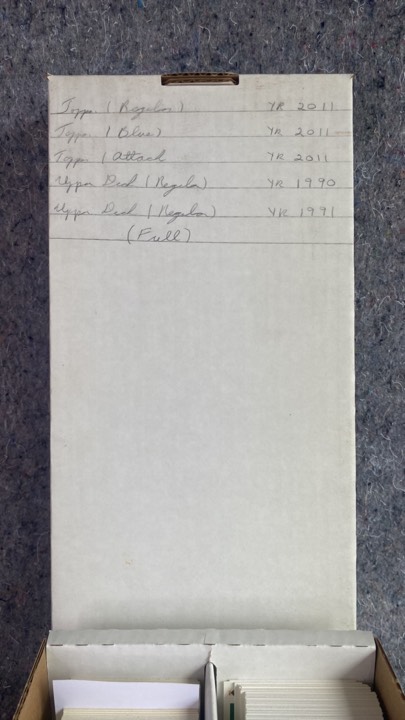 Topps (Regular) YR 2011
Topps (Blue) YR 2011
Topps (Attack YR 2011
Upper Deck (Regular) YR 1990
Upper Deck (Regular) YR 1991
(Full)